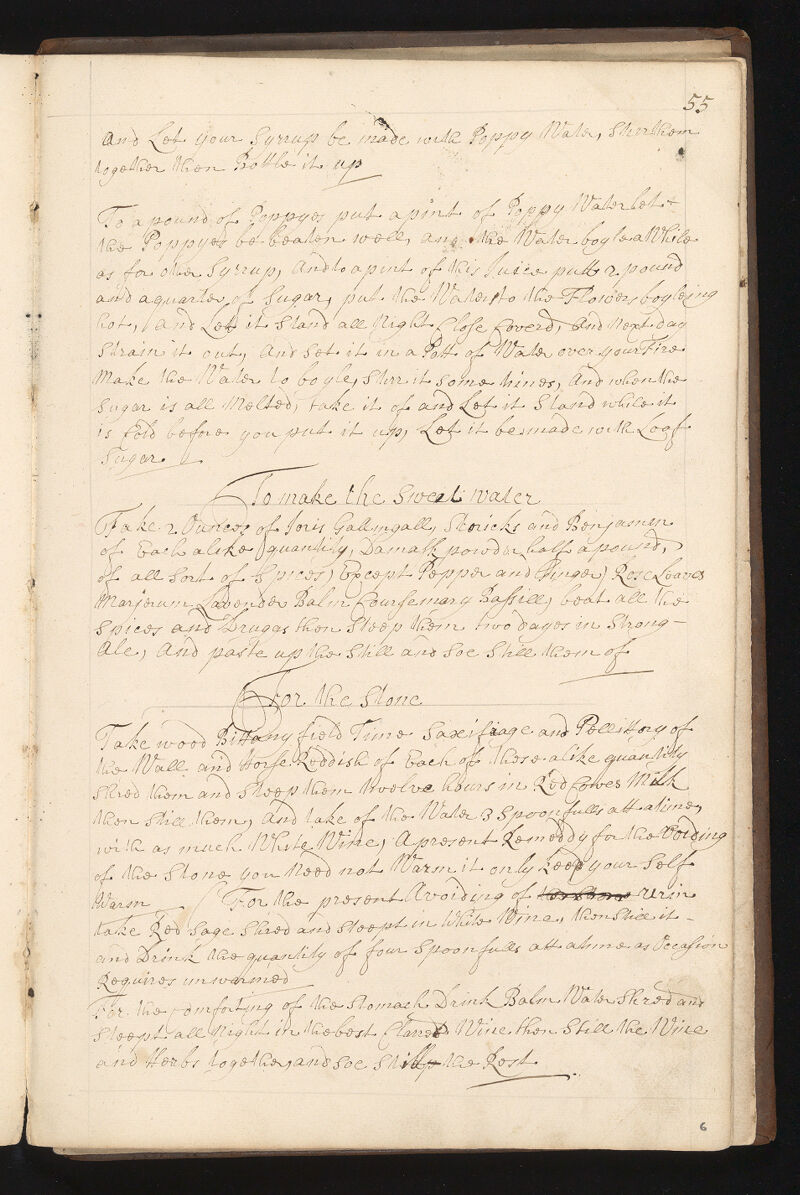 55
and Let your Syrrup be made with Poppy Water, Stirr them
together then Bottle it up
To a pound of Poppyes put a pint of Poppy Water let
the Poppyes be beaten well, and the Water boyle a While
as for other Syrrup, And to a pint of this Juice putt 2 pound
and a quarter of Sugar, put the Water to the Flowers boyleing
hot, and Let it Stand all Night Close Coverd, And next day
Strain it out, And Set it in a Pott of Water over your Fire
Make the Water to boyle, Stirr it some times, And when the
Sugar is all Melted, take it of and Let it Stand while it
is Cold before you put it up, Let it be made with Loaf
Sugar
To make the Sweet water
Take 2 Ounces of Joris Gallingall, Storicks and Benjamin
of Each alike quantity, Damask powder half a pound,
of all Sort of Spices, Except Pepper and Ginger, Rose Leaves
Marjerum Lavender Balm Coursemary Bassill, beat all the
Spices and Drugas then Steep them two dayes in Strong-
Ale, And paste up the Still and Soe Still them of
For the Stone
Take wood Bittany field Time Saxifrage and Pellittory of
the Wall and Horse Reddish of Each of these alike quantity
Shred them and Steep them twelve hours in Red Cowes Milk
then Still them, And take of the Water 3 Spoonfulls att atime,
with as much White Wine, A present Remeddy for the Voiding
of the Stone you Need not Warm it only Keep your Self
Warm For the present Avoiding of urin
take Red Sage Shred and Steept in White Wine, then Still it -
and Drink the quantity of four Spoonfulls att atime as Occasion
Requires unwarmed
For the comforting of the Stomach Drink Balm Water Shred and
Steept all Night in the best Clarred Wine then Still the Wine
and Herbs together, and soe Still the Rest
6